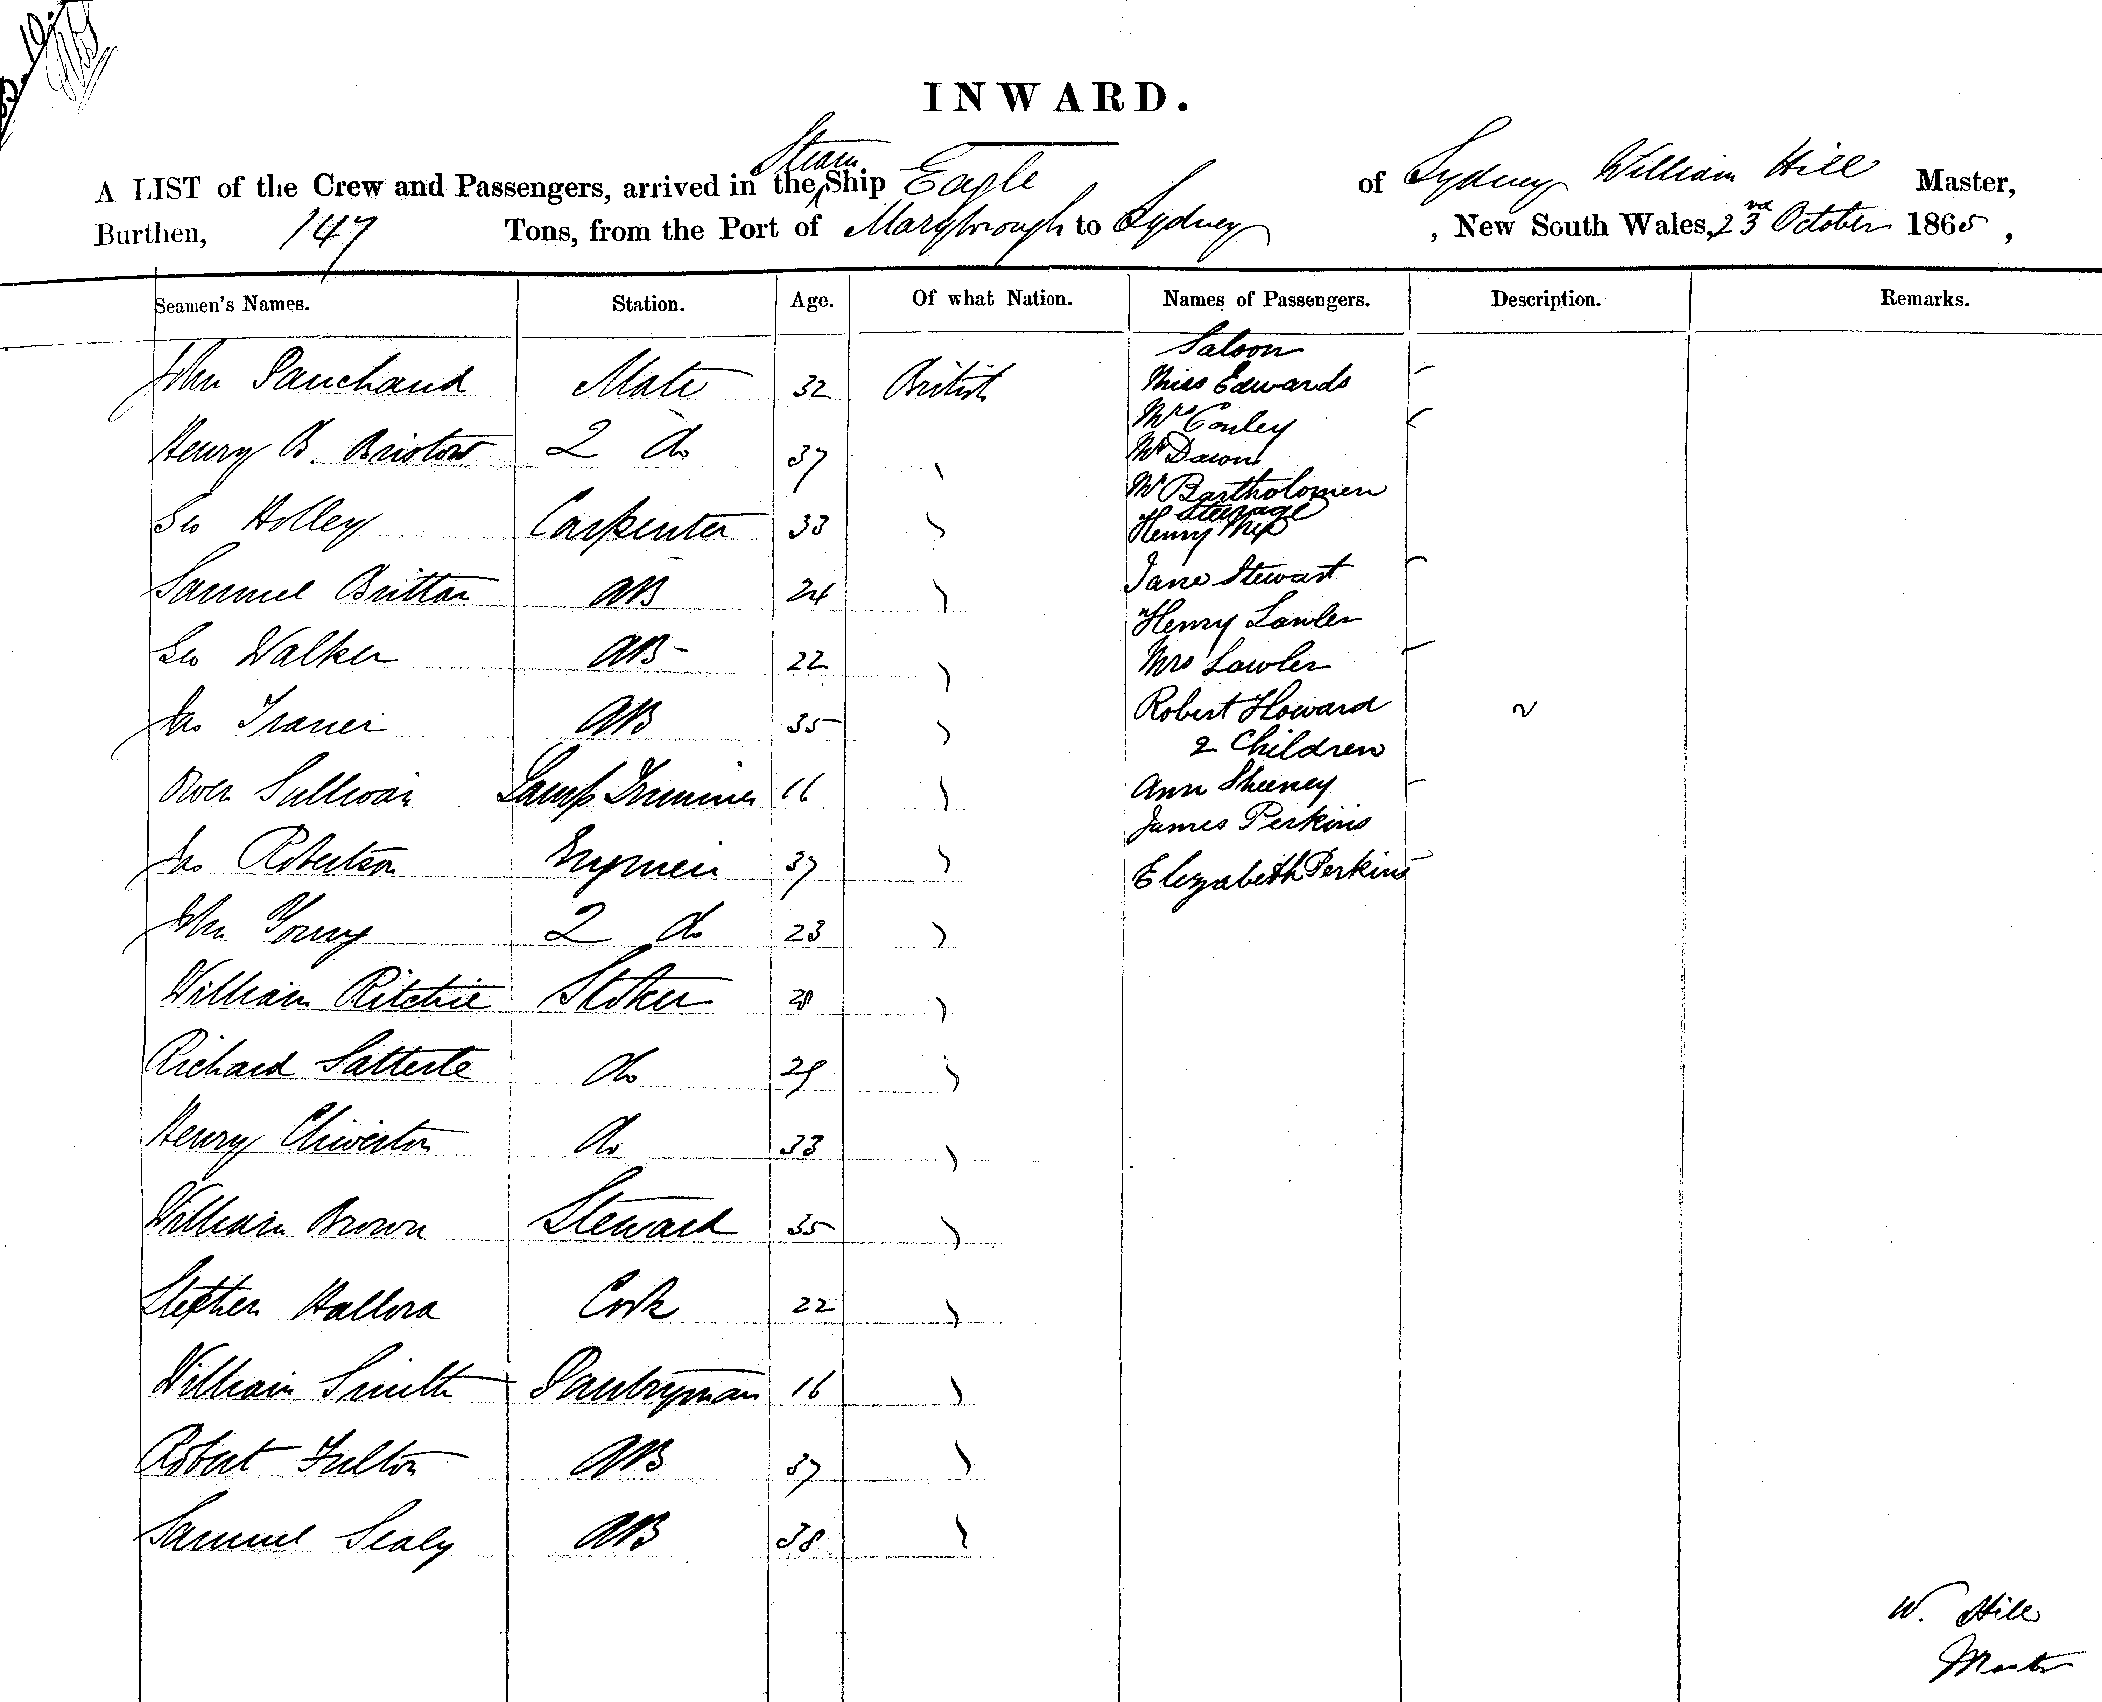 INWARD.
A LIST of the Crew and Passengers, arrived in the Steam Ship Eagle of Sydney William Hill Master,
Burthen, 147 Tons, from the Port of Maryborough to Sydney, New South Wales, 23rd October 1865,
Seamen's Names. Station. Age. Of what Nation. Names of Passengers. Description. Remarks.
Saloon
John Panchaud Mate 32 British Miss Edwards
Mrs Conley
Henry B. Bristow 2 do 37 Mr Dawn
Mr Bartholomew
Steerage
Geo Holley Carpenter 33 Henry
Samuel Britton AB 24 Jane Stewart
Henry Lawler
Geo Walker AB 22 Mrs Lawler
Jas AB 35 Robert Howard
2 Children
Owen Sullivan Lamp Trimmer 16 Ann Sheeney
James Perkins
Jas Robertson Engineer 37 Elezabeth Perkins
John Young 2 do 23
William Ritchie Stoker 28
Richard do 29
Henry Chiverton do 33
William Brown Steward 35
Stephen Hallora Cook 22
William Smith Pantryman 16
Robert Fulton AB 37
Samuel Sealy AB 38
W. Hill
Master